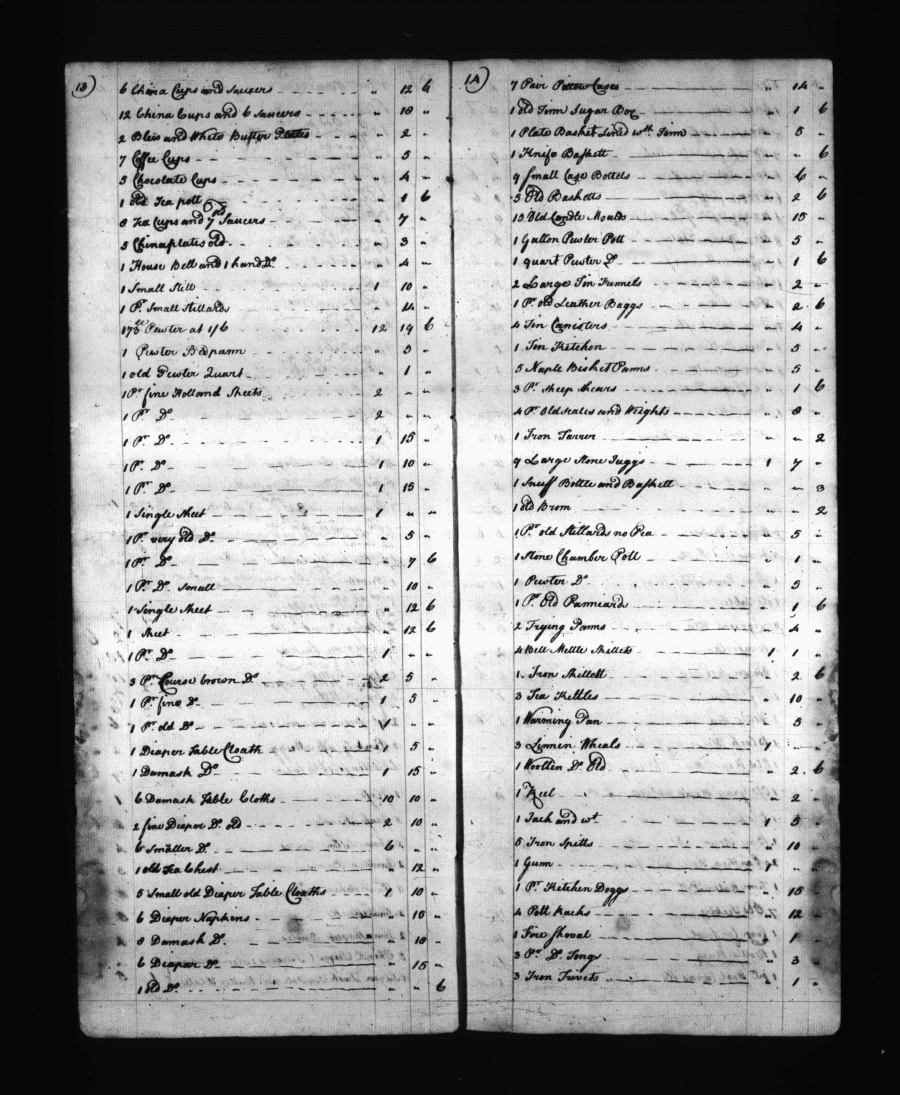 13)
6 China Cups and Saucers " 12 6
12 China Cups and 6 Saucers " 18 "
2 Blew and White Butter Plates " 2 "
7 Coffee Cups " 5 "
5 Chocolate Cups " 4 "
1 Old Tea pott " 1 6
8 Tea Cups and 7 old Saucers " 7 "
5 China plates old " 3 "
1 House Bell and 1 hand Do " 4 "
1 Small Still 1 10 "
1 Pr. Small Stillards " 14 "
173 lb Pewter at 1/6 12 19 6
1 Pewter Bedpann " 5 "
1 old Pewter Quart " 1 "
1 Pr fine Holland Sheets 2 " "
1 Pr. Do 2 " "
1 Pr. Do 1 15 "
1 Pr. Do 1 10 "
1 Pr. Do 1 15 "
1 Single Sheet 1 " "
1 Pr. very old Do " 5 "
1 Pr. Do " 7 6
1 Pr. Do Small " 10 "
1 Single Sheet " 12 6
1 Sheet " 12 6
1 Pr. Do 1 " "
3 Pr. Course brown Do 2 5 "
1 Pr. fine Do 1 5 "
1 Pr. old Do " "
1 Diaper Table Cloath 1 5 "
1 Damask Do 1 15 "
6 Damask Table Cloths 10 10 "
2 fine Diaper Do old 2 10 "
6 Smaller Do 6 " "
1 old Tea Chest " 12 "
5 Small old Diaper Table Cloaths 1 10 "
6 Diaper Napkens " 15 "
8 Damask Do " 18 "
6 Diaper Do " 15 "
1 old Do " " 6
14)
7 Pair Pillow Cases " 14 "
1 old Tinn Sugar Box " 1 6
1 Plate Basket Lined wth Tinn " 5 "
1 Knife Baskett " " 6
9 Small Case Bottels " 6 "
5 Old Basketts " 2 6
15 Old Candle Moulds " 15 "
1 Gallon Pewter Pott " 5 "
1 quart Pewter Do " 1 6
2 Large Tin Funnels " 2 "
1 Pr. old Leather Baggs " 2 6
4 Tin Canisters " 4 "
1 Tin Kitchen " 5 "
5 Naple Bisket Panns " 5 "
3 Pr. Sheep Shears " 1 6
4 Pr. Old scales and Weights " 8 "
1 Iron " " 2
9 Large Stone Juggs 1 7 "
1 Snuff Bottle and Baskett " " 3
1 old Brom " " 2
1 Pr. old Stillards no Pea " 5 "
1 Stone Chamber Pott " 1 "
1 Pewter Do " 5 "
1 Pr. Old " 1 6
2 Frying Panns " 4 "
4 Bell Mettle Skillets 1 1 "
1 Iron Skillett " 2 6
3 Tea Kettles " 10 "
1 Warming Pan " 5 "
3 Linnen Wheals 1 " "
1 Woollin Do Old " 2 6
1 Reel " 2 "
1 Jack and wt 1 5 "
5 Iron Spitts " 10 "
1 Gunn 1 " "
1 Pr. Kitchen Doggs " 15 "
4 Pott Racks " 12 "
1 Fire Shoval " 1 "
3 Pr. Do Tongs " 3 "
3 Iron Trivets " 1 "